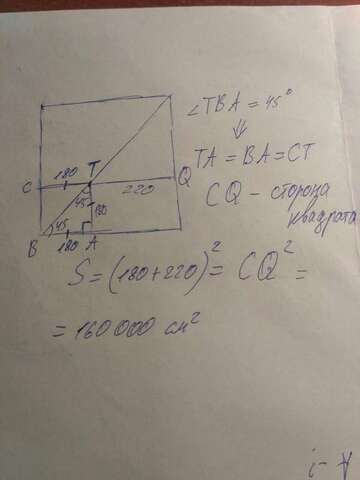 ∠TBA = 45°
⇓
TA = BA = CT
CQ – сторона
квадрата
C 180 T 220 Q
45 180
B 45 180 A
S = (180+220)² = CQ² =
= 160 000 см²